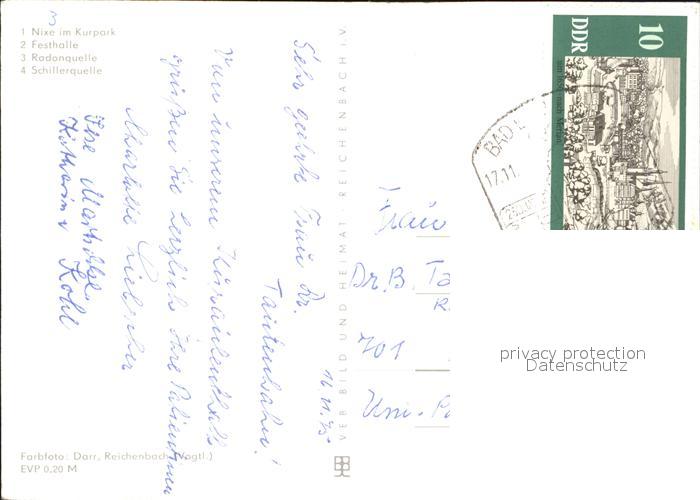 1 Nixe im Kurpark
2 Festhalle
3 Radonquelle
4 Schillerquelle
16.11.75
Sehr geehrte Frau Dr.
Tautenhahn!
Von unserem Kuraufenthalt
grüßen Sie herzlich Ihre Patientinnen
Liebscher
Ilse
Katharina Kohl
VEB BILD UND HEIMAT REICHENBACH i.V.
DDR
10
BAD
17.11.
Frau
Dr. B. Ta
701
Uni.-
privacy protection
Datenschutz
Farbfoto: Darr, Reichenbach (Vogtl.)
EVP 0,20 M